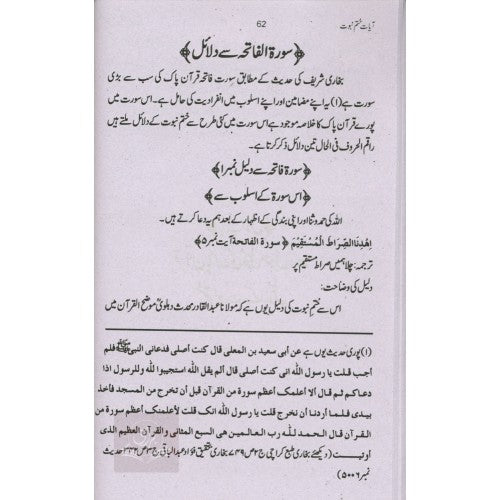 آیات ختم نبوت 62
﴿سورۃ الفاتحہ سے دلائل﴾
بخاری شریف کی حدیث کے مطابق سورت فاتحہ قرآن پاک کی سب سے بڑی
سورت ہے(۱) یہ اپنے مضامین اور اپنے اسلوب میں انفرادیت کی حامل ہے۔ اس سورت میں
پورے قرآن پاک کا خلاصہ موجود ہے اس سورت میں کئی طرح سے ختم نبوت کے دلائل ملتے ہیں
راقم الحروف فی الحال تین دلائل ذکر کرتا ہے۔
﴿سورۃ فاتحہ سے دلیل نمبر۱﴾
﴿اس سورۃ کے اسلوب سے﴾
اللہ کی حمد و ثنا اور اپنی بندگی کے اظہار کے بعد ہم یہ دعا کرتے ہیں۔
اِهْدِنَا الصِّرَاطَ الْمُسْتَقِيْمَ ﴿سورۃ الفاتحۃ آیت نمبر ۵﴾
ترجمہ: چلا ہمیں صراط مستقیم پر
دلیل کی وضاحت:
اس سے ختم نبوت کی دلیل یوں ہے کہ مولانا عبدالقادر محدث دہلویؒ موضح القرآن میں
(۱) پوری حدیث یوں ہے عن أبي سعيد بن المعلى قال كنت أصلي فدعاني النبي ﷺ فلم
أجب قلت يا رسول الله اني كنت أصلي قال ألم يقل الله استجيبوا لله وللرسول اذا
دعاكم ثم قال ألا أعلمك أعظم سورة من القرآن قبل أن تخرج من المسجد فأخذ
بيدي فلما أردنا أن نخرج قلت يا رسول الله انك قلت لأعلمنك أعظم سورة من
القرآن قال الحمد لله رب العالمين هي السبع المثاني والقرآن العظيم الذي
أوتيت (دیکھئے بخاری طبع کراچی ج۲ ص ۷۴۹ بخاری بتحقیق فؤاد عبدالباقی ج۳ ص ۳۴۲ حدیث
نمبر ۵۰۰۶)